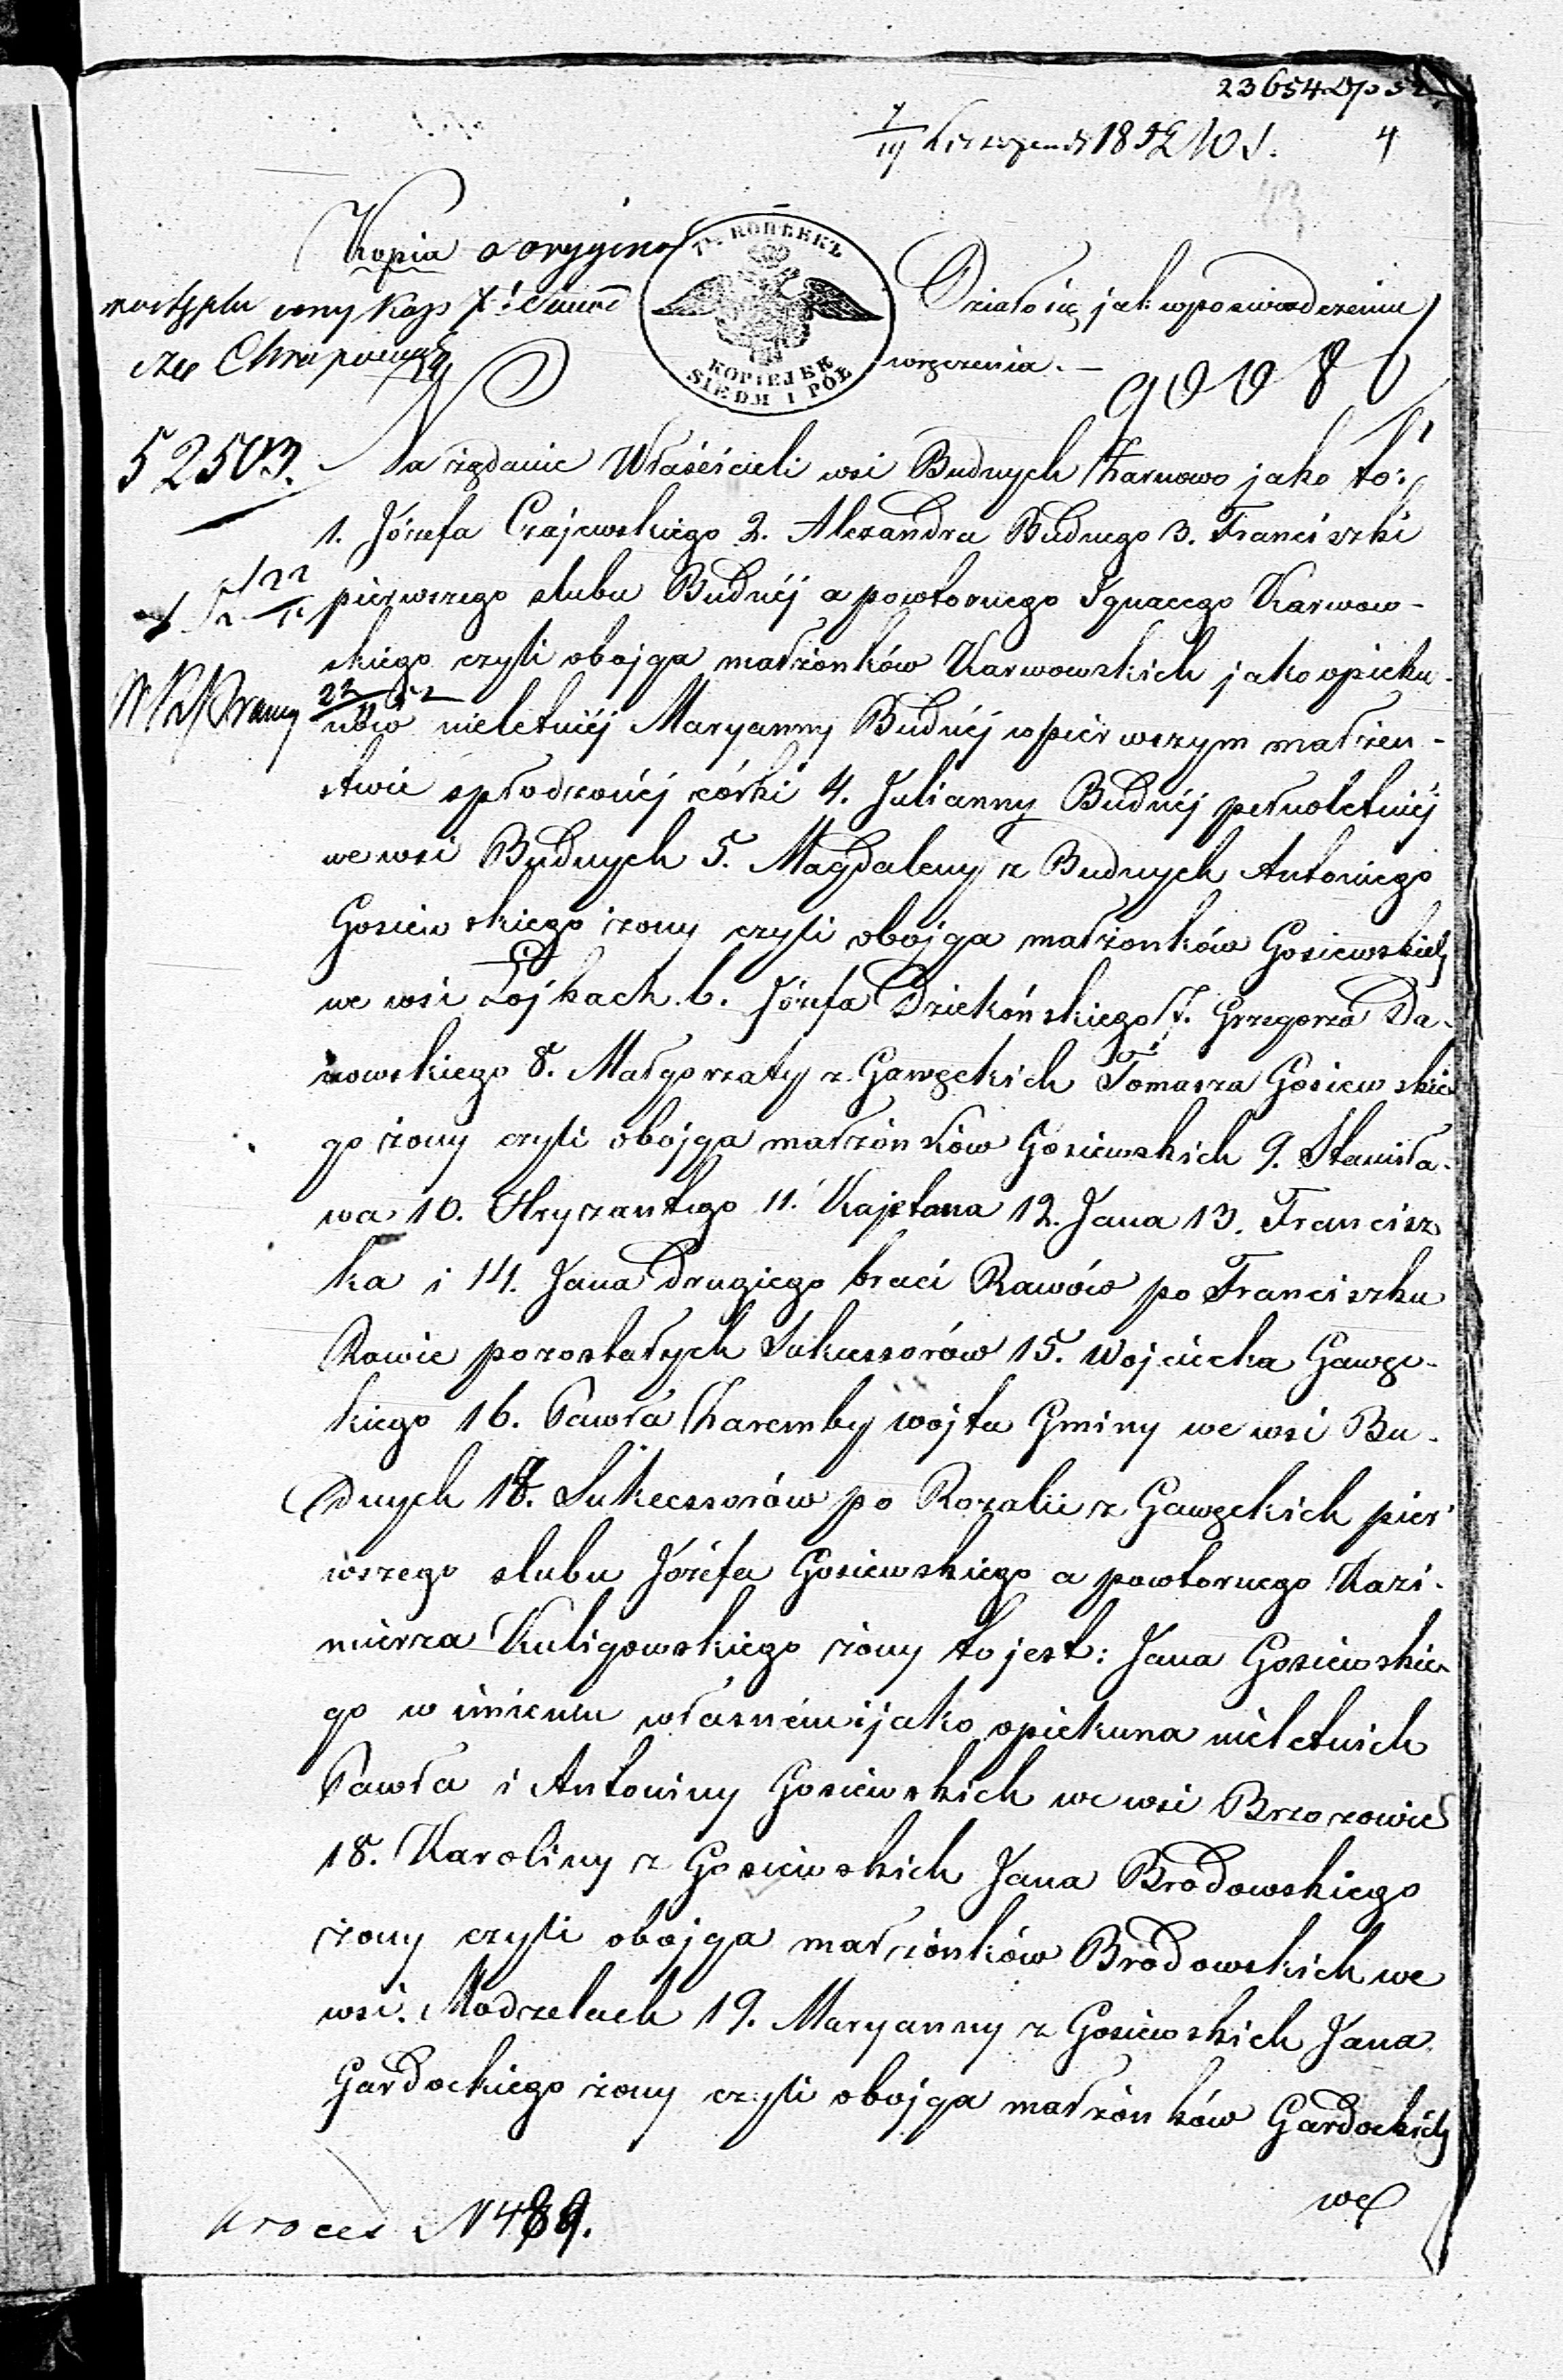 23654 Dp 52
7/19 1852 W S. 4
Kopia a oryginał
Działo się jak wpoświadczeniu
wręczenia. —
ТЬ КОПѢЕКЪ
KOPIEJEK
SIEDM I PÓŁ
90086
52503.
Na żądanie Właścicieli wsi Budnych Żarnowo jako to:
1. Józefa Czajewskiego 2. Alexandra Budnego 3. Franciszki
pierwszego slubu Budnéj a powtornego Ignacego Karwow-
skiego czyli obojga małżonków Karwowskich jako opieku-
23/11 52
nów nieletniéj Maryanny Budnéj wpierwszym małżeń-
stwie spłodzonéj córki 4. Julianny Budnéj pełnoletniéj
we wsi Budnych 5. Magdaleny z Budnych Antoniego
Gosiewskiego żony czyli obojga małżonków Gosiewskich
we wsi Łojkach 6. Józefa Dziekońskiego 7. Grzegorza Da-
nowskiego 8. Małgorzaty z Gawęckich Tomasza Gosiewskie-
go żony czyli obojga małżonków Gosiewskich 9. Stanisła-
wa 10. Chryzantego 11. Kajetana 12. Jana 13. Francisz
ka i 14. Jana drugiego braci Rawów po Franciszku
Rawie pozostałych Sukcessorów 15. Wojciecha Gawęc-
kiego 16. Pawła Zaremby wójta Gminy we wsi Bu-
dnych 17. Sukcessorów po Rozalii z Gawęckich pier-
wszego slubu Józefa Gosiewskiego a powtornego Kazi-
mierza Kuligowskiego żony to jest: Jana Gosiewskie-
go w imieniu własném i jako opiekuna nieletnich
Pawła i Antoniny Gosiewskich we wsi Brzozowie
18. Karoliny z Gosiewskich Jana Brodowskiego
żony czyli obojga małżonków Brodowskich we
wsi Modzelach 19. Maryanny z Gosiewskich Jana
Gardockiego żony czyli obojga małżonków Gardockich
we
Proces N 489.